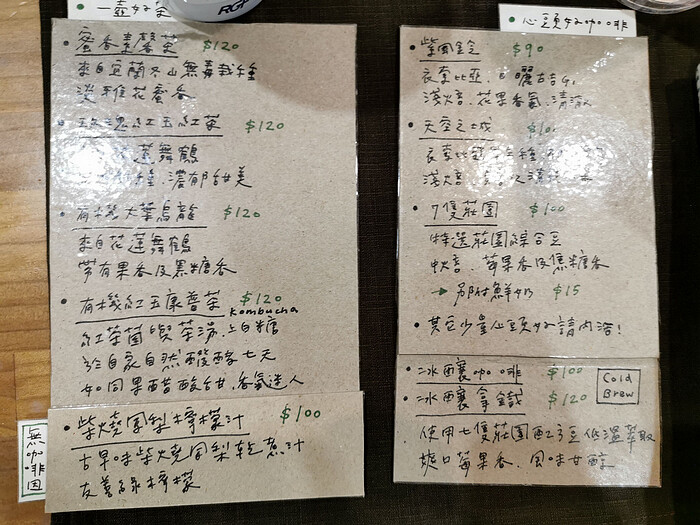 一壺好茶
RGP
蜜香素馨茶 $120
來自宜蘭冬山無毒栽種
淡雅花蜜香
玫瑰紅玉紅茶 $120
蓮舞鶴
種.濃郁甜美
有機大葉烏龍 $120
來自花蓮舞鶴
帶有果香及黑糖香
有機紅玉康普茶 $120
Kombucha
紅茶菌喫茶湯.上白糖
於自家自然醱酵七天
如同果醋酸甜.香氣迷人
柴燒鳳梨檸檬汁 $100
古早味柴燒鳳梨乾熬汁
友善綠檸檬
無咖啡因
心頭好咖啡
紫風鈴 $90
衣索比亞.日曬古吉G1
淺焙.花果香氣.清澈
天空之城 $100
衣索比
淺焙
7隻莊園 $100
特選莊園綜合豆
中焙.莓果香及焦糖香
→另附鮮奶 $15
其它少量心頭好請內洽!
冰釀咖啡 $100
冰釀拿鐵 $120
Cold
Brew
使用七隻莊園配方豆低溫萃取
爽口莓果香.風味甘醇